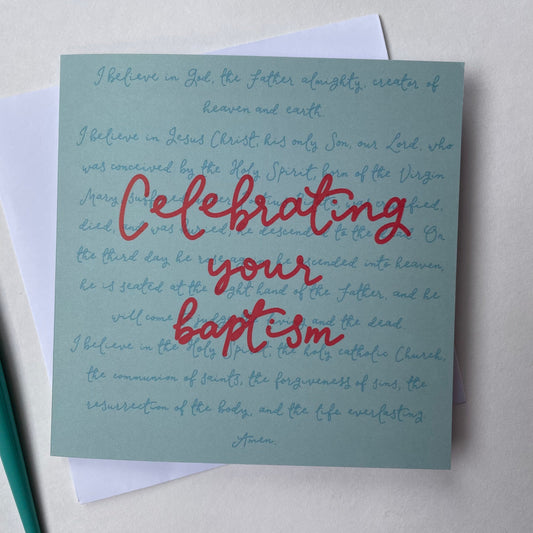 I believe in God, the Father almighty, creator of
heaven and earth.
I believe in Jesus Christ, his only Son, our Lord, who
was conceived by the Holy Spirit, born of the Virgin
Mary, suffered under Pontius Pilate, was crucified,
died, and was buried; he descended to the dead. On
the third day he rose again; he ascended into heaven,
he is seated at the right hand of the Father, and he
will come to judge the living and the dead.
I believe in the Holy Spirit, the holy catholic Church,
the communion of saints, the forgiveness of sins, the
resurrection of the body, and the life everlasting.
Amen.
Celebrating
your
baptism